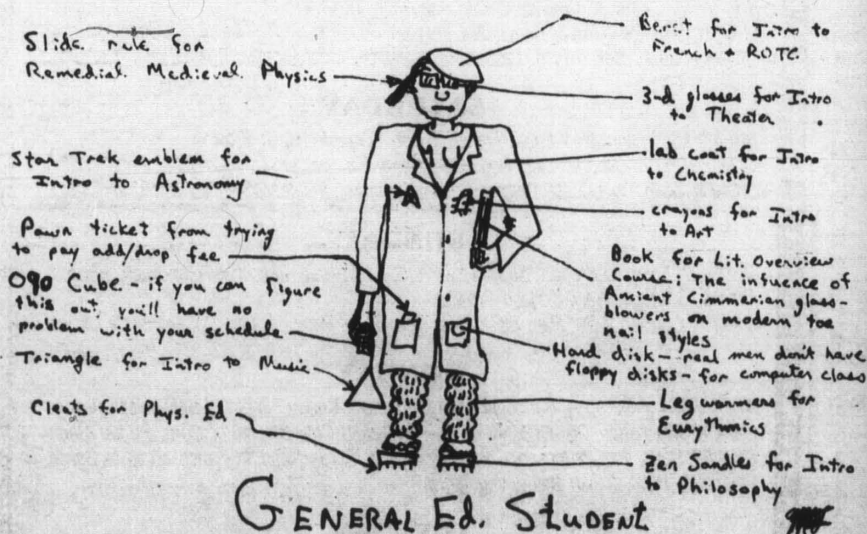 Slide rule for
Remedial Medieval Physics
Star Trek emblem for
Intro to Astronomy
Pawn ticket from trying
to pay add/drop fee
O90 Cube - if you can figure
this out, you'll have no
problem with your schedule
Triangle for Intro to Music
Cleats for Phys. Ed
IU
A
Berit for Intro to
French + ROTC
3-d glasses for Intro
to Theater
lab coat for Intro
to Chemistry
crayons for Intro
to Art
Book for Lit. Overview
Course; The infuence of
Amient Cimmerian glass-
blowers on modern toe
nail styles
Hard disk -- real men don't have
floppy disks - for computer class
Leg warmers for
Eurythmics
Zen Sandles for Intro
to Philosophy
GENERAL Ed. STUDENT